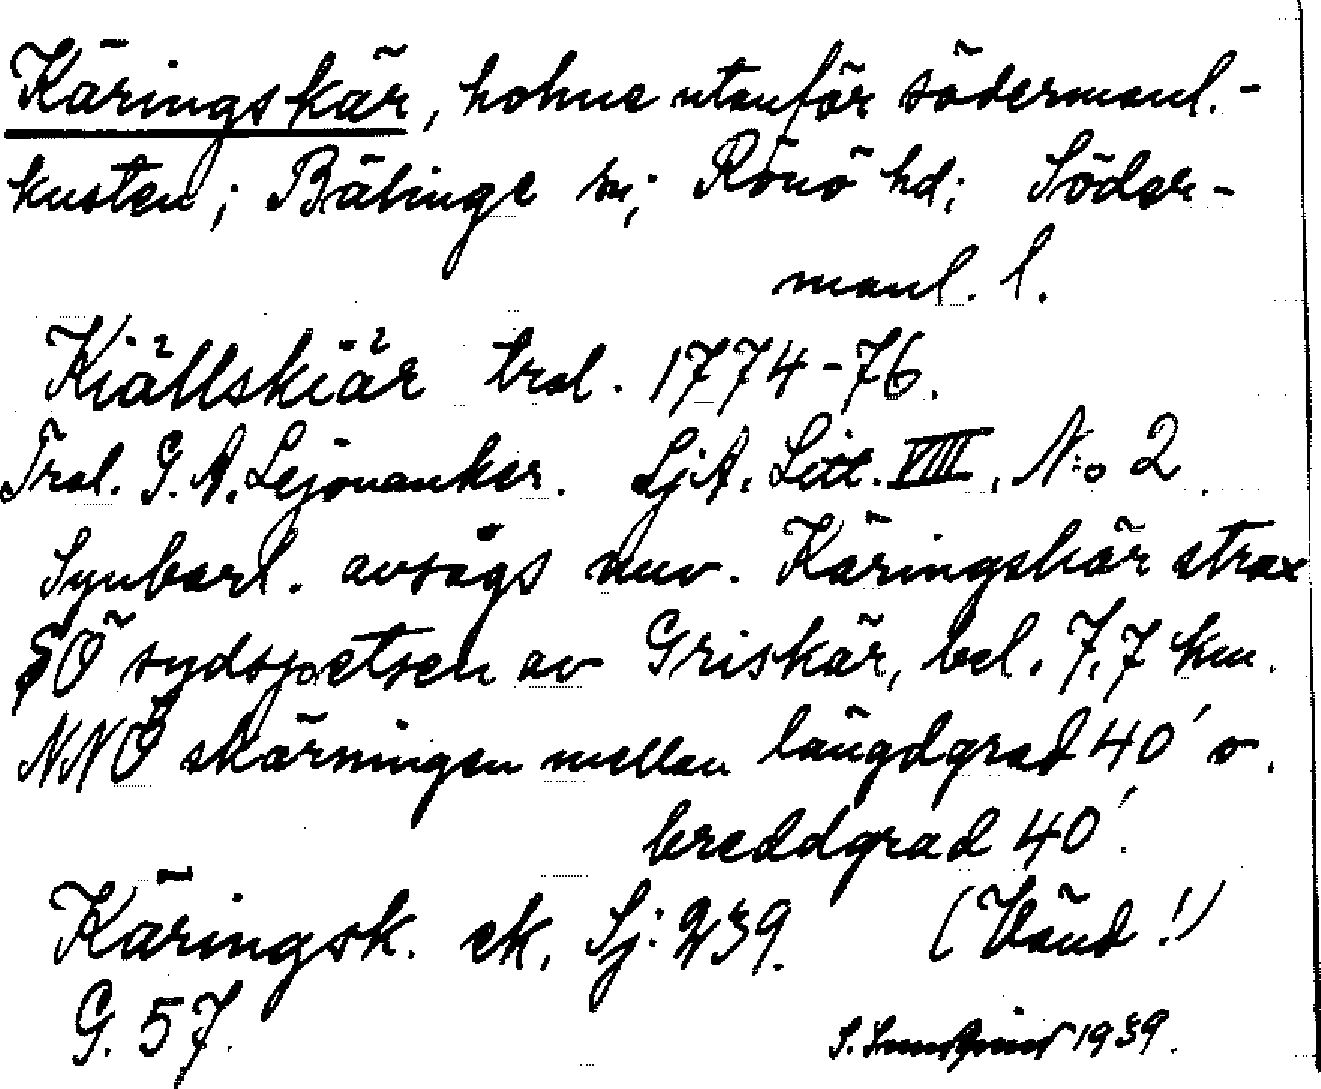 Käringskär, holme utanför södermanl.-
kusten; Bälinge sn; Rönö hd; Söder-
manl. l.
Kiällskiär trol. 1774-76.
Trol. G. A. Lejonanker. SjA. Litt. VIII, N:o 2.
Synbarl. avságs nuv. Käringskär strax
SÖ sydspetsen av Griskär, bel. 7,7 km.
NNÖ skärningen mellan längdgrad 40' o.
breddgrad 40'.
Käringsk. ek. Sj: 239. (Vänd!)
G. 57.
1939.